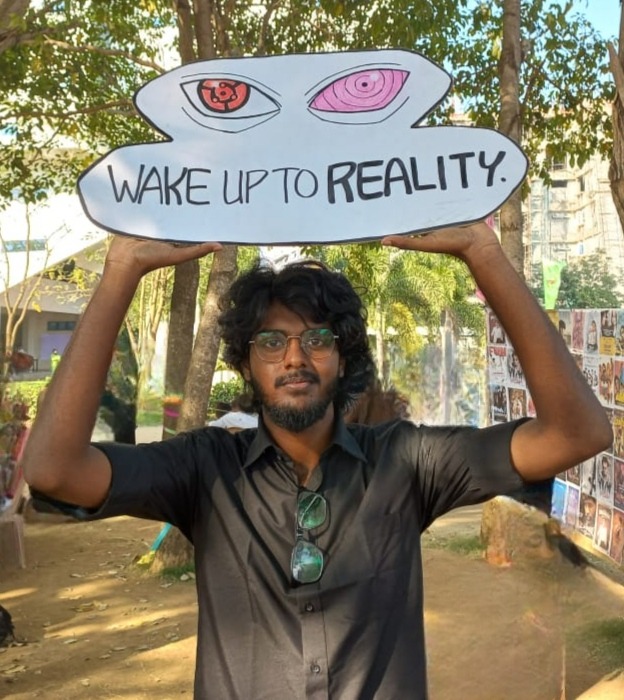 WAKE UP TO REALITY.